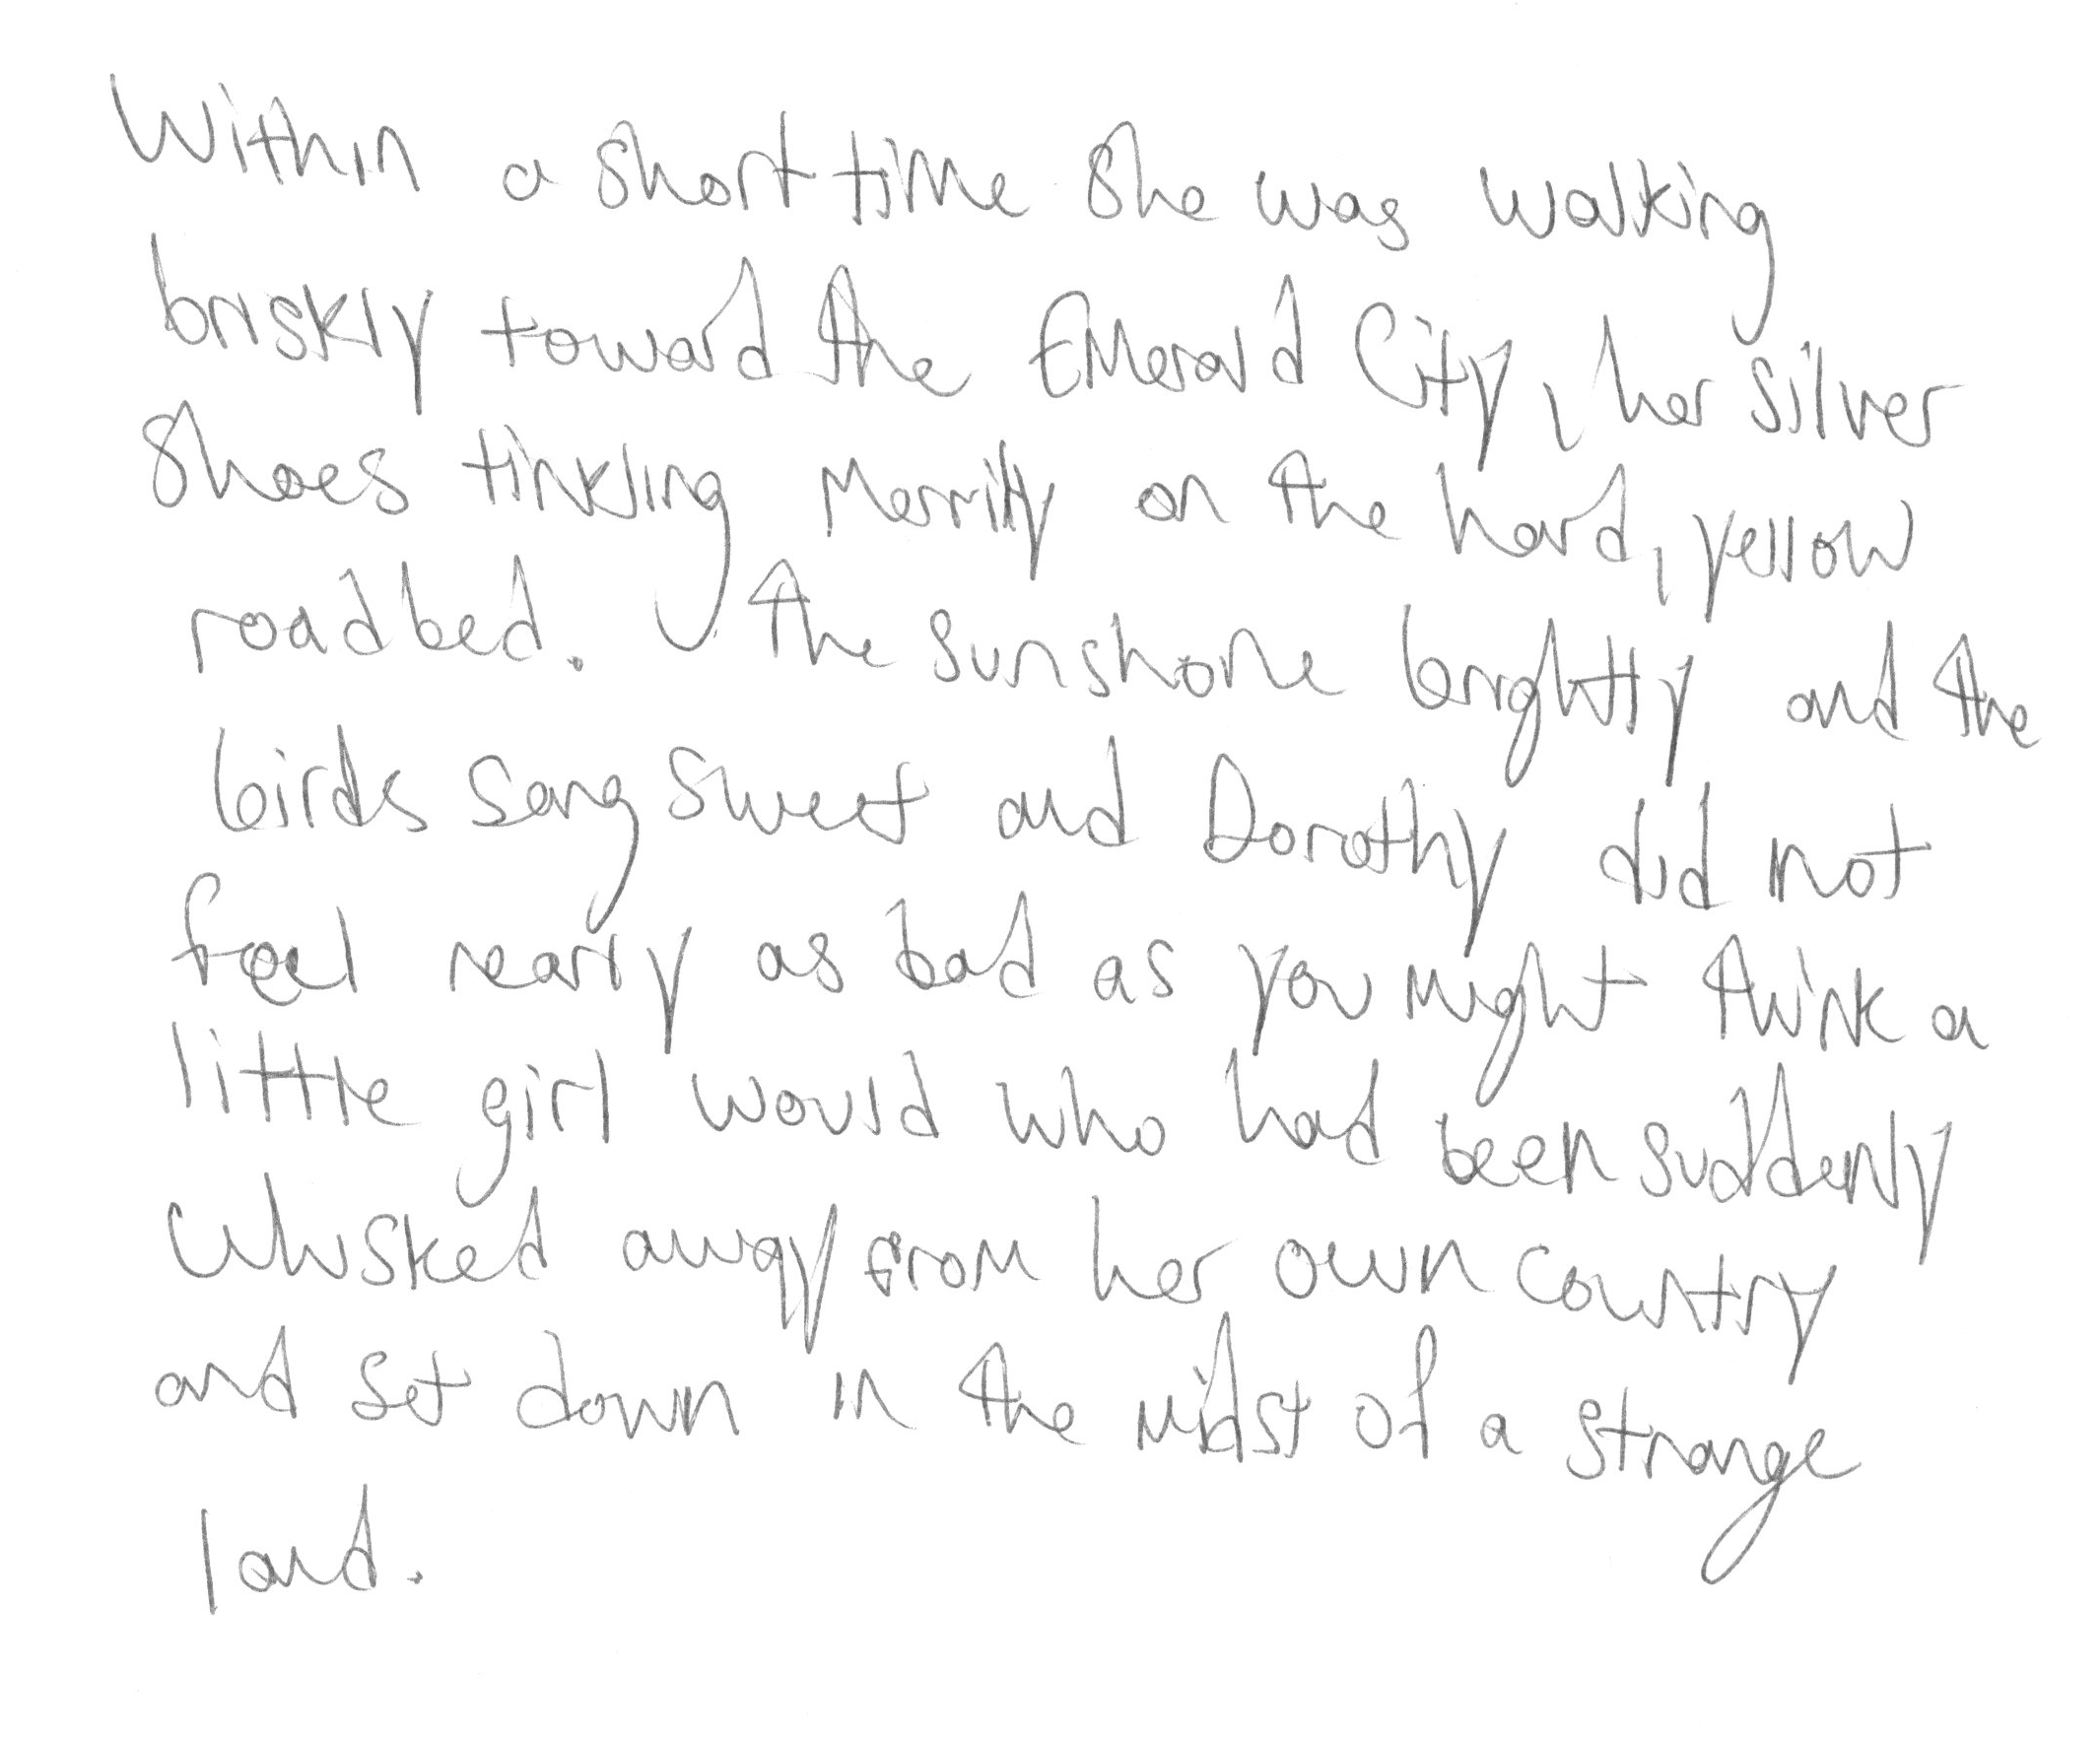 Within a short time she was walking
briskly toward the Emerald City, her silver
shoes tinkling merrily on the hard, yellow
roadbed. The sun shone brightly and the
birds sang sweet and Dorothy did not
feel nearly as bad as you might think a
little girl would who had been suddenly
whisked away from her own country
and set down in the midst of a strange
land.